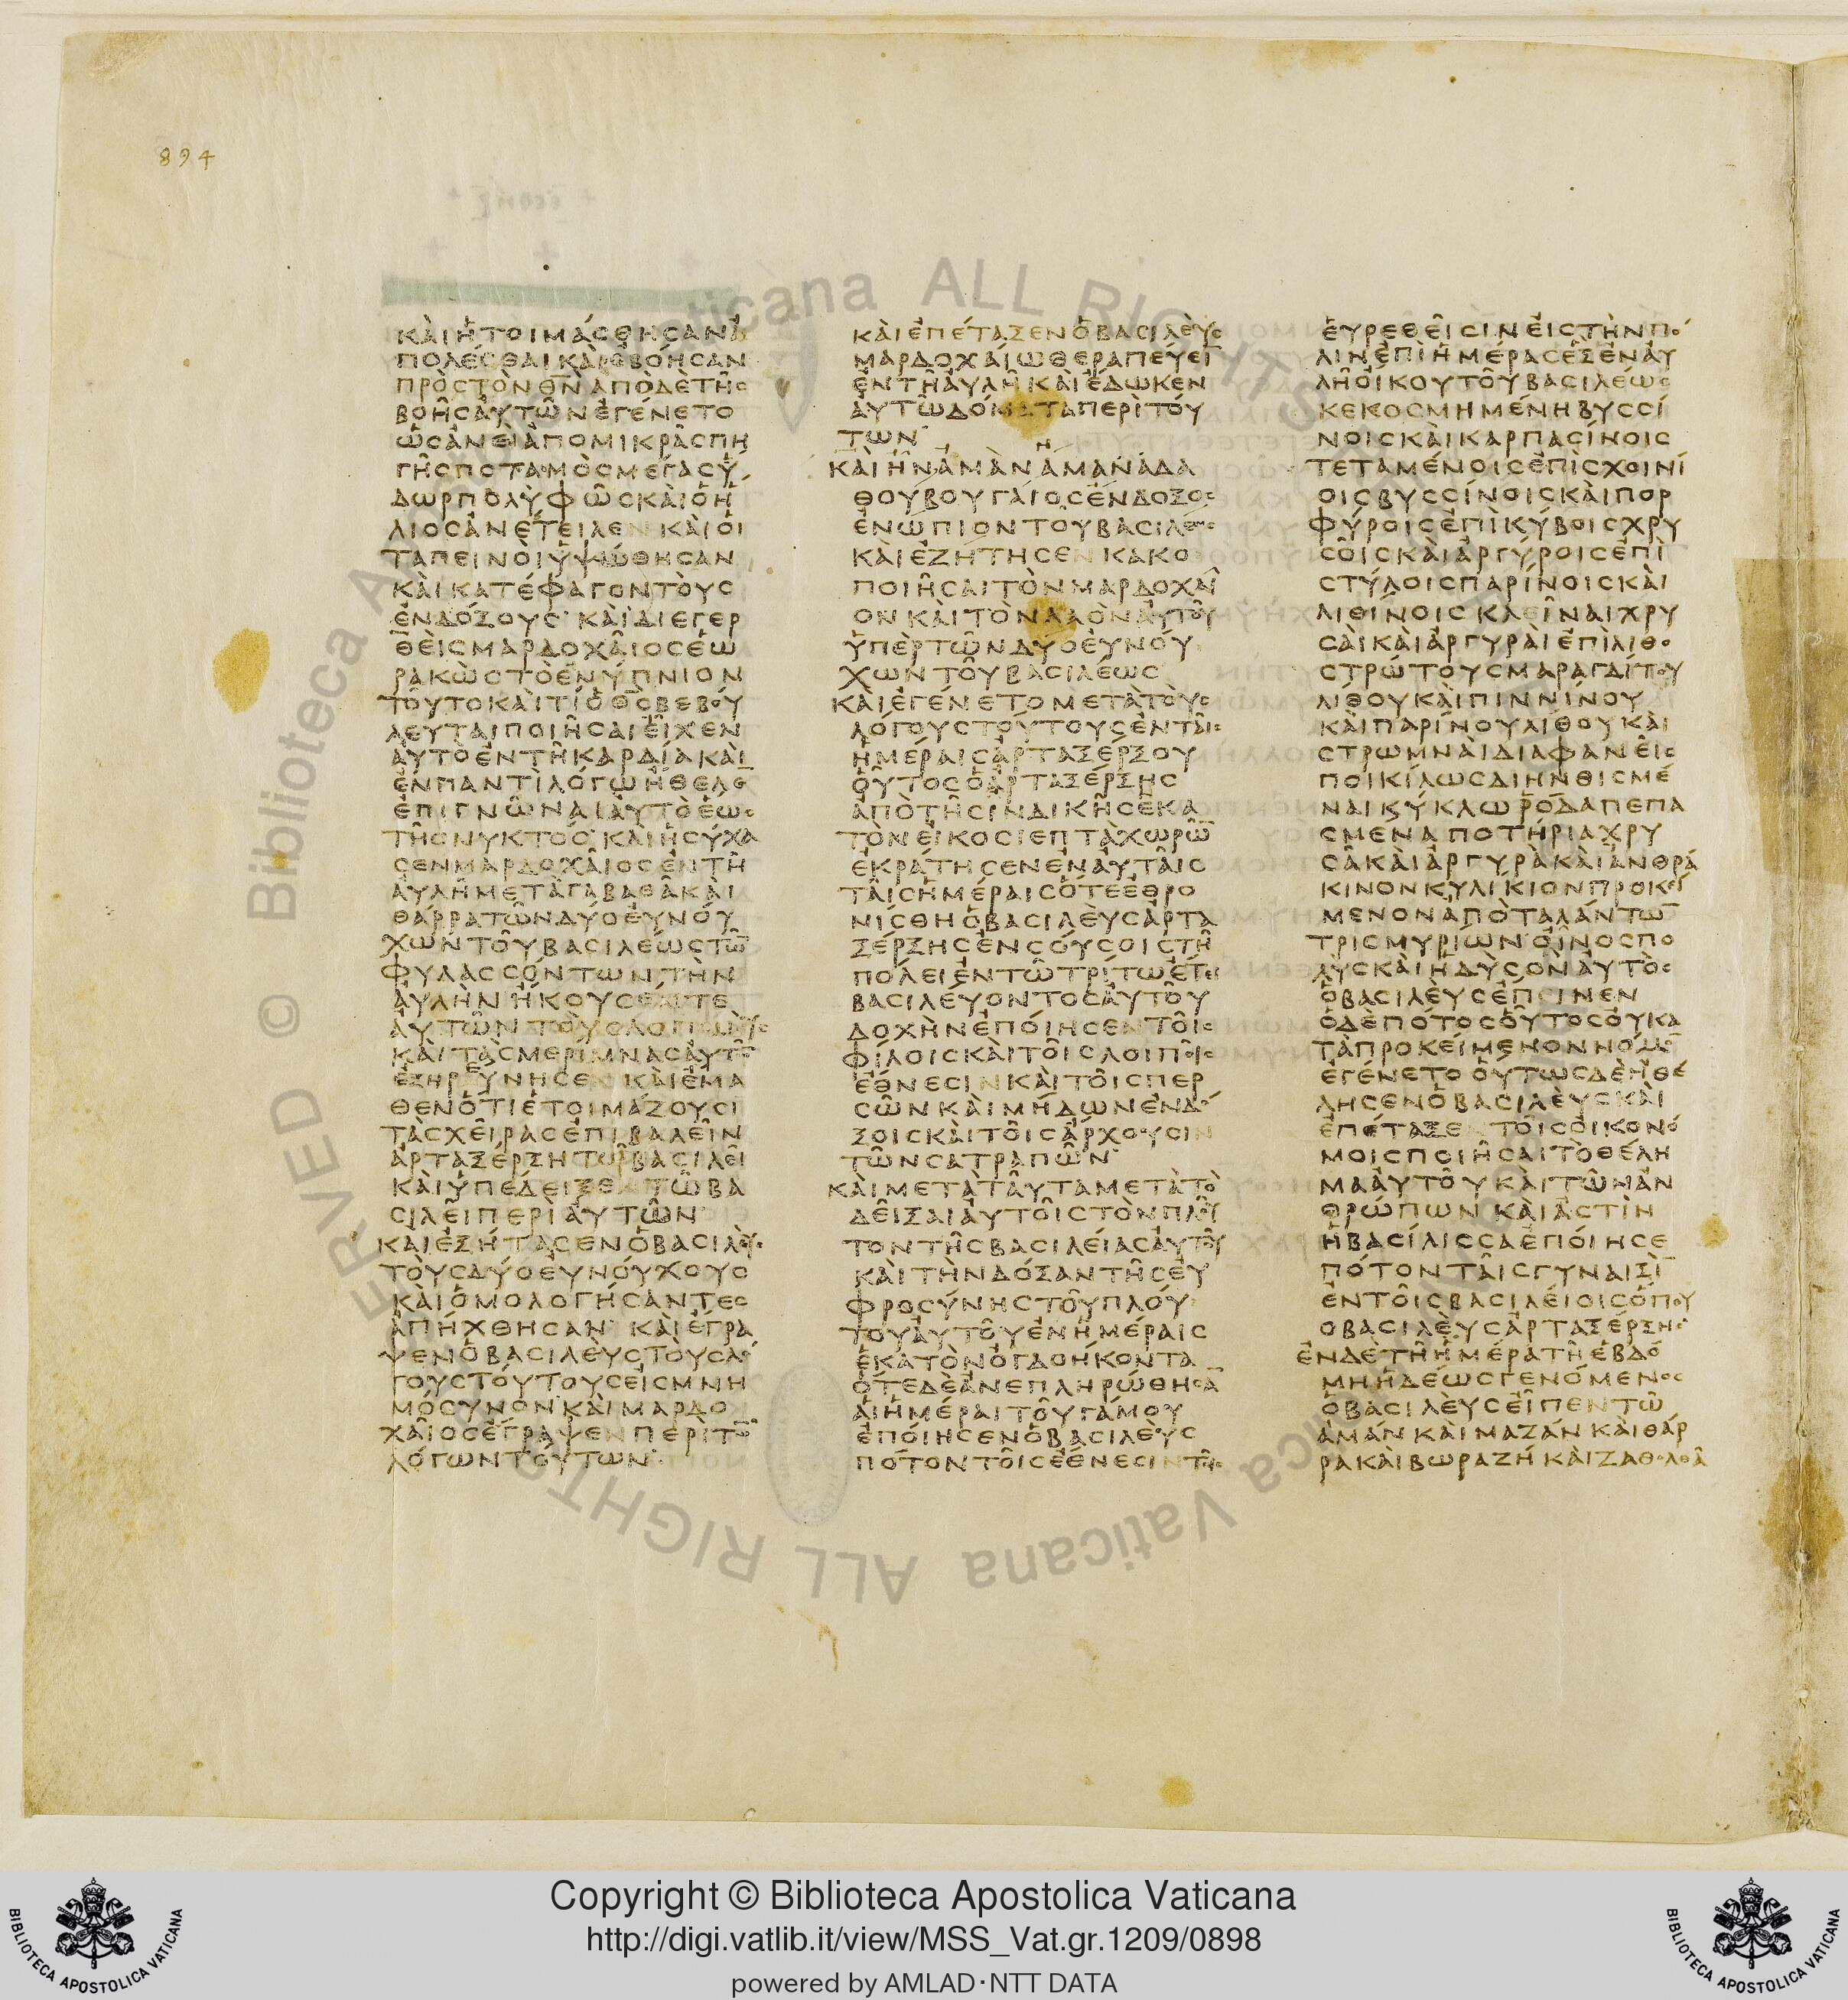 894
ΚΑΙΗΤΟΙΜΑϹΘΗϹΑΝΑ
ΠΟΛΕϹΘΑΙΚΑΙΕΒΟΗϹΑΝ
ΠΡΟϹΤΟΝΘΝΑΠΟΔΕΤΗϹ
ΒΟΗϹΑΥΤΩΝΕΓΕΝΕΤΟ
ΩϹΑΝΕΙΑΠΟΜΙΚΡΑϹΠΗ
ΓΗϹΠΟΤΑΜΟϹΜΕΓΑϹΥ
ΔΩΡΠΟΛΥΦΩϹΚΑΙΟΗ
ΛΙΟϹΑΝΕΤΕΙΛΕΝΚΑΙΟΙ
ΤΑΠΕΙΝΟΙΥΨΩΘΗϹΑΝ
ΚΑΙΚΑΤΕΦΑΓΟΝΤΟΥϹ
ΕΝΔΟΞΟΥϹ ΚΑΙΔΙΕΓΕΡ
ΘΕΙϹΜΑΡΔΟΧΑΙΟϹΕΩ
ΡΑΚΩϹΤΟΕΝΥΠΝΙΟΝ
ΤΟΥΤΟΚΑΙΤΙΟΘϹΒΕΒΟΥ
ΛΕΥΤΑΙΠΟΙΗϹΑΙΕΙΧΕΝ
ΑΥΤΟΕΝΤΗΚΑΡΔΙΑΚΑΙ
ΕΝΠΑΝΤΙΛΟΓΩΗΘΕΛΕ
ΕΠΙΓΝΩΝΑΙΑΥΤΟΕΩϹ
ΤΗϹΝΥΚΤΟϹ ΚΑΙΗϹΥΧΑ
ϹΕΝΜΑΡΔΟΧΑΙΟϹΕΝΤΗ
ΑΥΛΗΜΕΤΑΓΑΒΑΘΑΚΑΙ
ΘΑΡΡΑΤΩΝΔΥΟΕΥΝΟΥ
ΧΩΝΤΟΥΒΑϹΙΛΕΩϹΤΩ
ΦΥΛΑϹϹΟΝΤΩΝΤΗΝ
ΑΥΛΗΝΗΚΟΥϹΕΝΤΕ
ΑΥΤΩΝΤΟΥϹΛΟΓΙϹΜΟΥϹ
ΚΑΙΤΑϹΜΕΡΙΜΝΑϹΑΥΤΩ
ΕΞΗΡΕΥΝΗϹΕΝΚΑΙΕΜΑ
ΘΕΝΟΤΙΕΤΟΙΜΑΖΟΥϹΙ
ΤΑϹΧΕΙΡΑϹΕΠΙΒΑΛΕΙΝ
ΑΡΤΑΞΕΡΞΗΤΩΒΑϹΙΛΕΙ
ΚΑΙΥΠΕΔΕΙΞΕΝΤΩΒΑ
ϹΙΛΕΙΠΕΡΙΑΥΤΩΝ
ΚΑΙΕΞΗΤΑϹΕΝΟΒΑϹΙΛΕΥϹ
ΤΟΥϹΔΥΟΕΥΝΟΥΧΟΥϹ
ΚΑΙΟΜΟΛΟΓΗϹΑΝΤΕϹ
ΑΠΗΧΘΗϹΑΝ ΚΑΙΕΓΡΑ
ΨΕΝΟΒΑϹΙΛΕΥϹΤΟΥϹΛΟ
ΓΟΥϹΤΟΥΤΟΥϹΕΙϹΜΝΗ
ΜΟϹΥΝΟΝΚΑΙΜΑΡΔΟ
ΧΑΙΟϹΕΓΡΑΨΕΝΠΕΡΙΤΩ
ΛΟΓΩΝΤΟΥΤΩΝ
ΚΑΙΕΠΕΤΑΞΕΝΟΒΑϹΙΛΕΥϹ
ΜΑΡΔΟΧΑΙΩΘΕΡΑΠΕΥΕΙ
ΕΝΤΗΑΥΛΗΚΑΙΕΔΩΚΕΝ
ΑΥΤΩΔΟΜΑΤΑΠΕΡΙΤΟΥ
ΤΩΝ
ΚΑΙΗΝΑΜΑΝΑΜΑΝΑΔΑ
ΘΟΥΒΟΥΓΑΙΟϹΕΝΔΟΞΟϹ
ΕΝΩΠΙΟΝΤΟΥΒΑϹΙΛΕΩϹ
ΚΑΙΕΖΗΤΗϹΕΝΚΑΚΟ
ΠΟΙΗϹΑΙΤΟΝΜΑΡΔΟΧΑΙ
ΟΝΚΑΙΤΟΝΛΑΟΝΑΥΤΟΥ
ΥΠΕΡΤΩΝΔΥΟΕΥΝΟΥ
ΧΩΝΤΟΥΒΑϹΙΛΕΩϹ
ΚΑΙΕΓΕΝΕΤΟΜΕΤΑΤΟΥϹ
ΛΟΓΟΥϹΤΟΥΤΟΥϹΕΝΤΑΙϹ
ΗΜΕΡΑΙϹΑΡΤΑΞΕΡΞΟΥ
ΟΥΤΟϹΟΑΡΤΑΞΕΡΞΗϹ
ΑΠΟΤΗϹΙΝΔΙΚΗϹΕΚΑ
ΤΟΝΕΙΚΟϹΙΕΠΤΑΧΩΡΩ
ΕΚΡΑΤΗϹΕΝΕΝΑΥΤΑΙϹ
ΤΑΙϹΗΜΕΡΑΙϹΟΤΕΕΘΡΟ
ΝΙϹΘΗΟΒΑϹΙΛΕΥϹΑΡΤΑ
ΞΕΡΞΗϹΕΝϹΟΥϹΟΙϹΤΗ
ΠΟΛΕΙΕΝΤΩΤΡΙΤΩΕΤΕΙ
ΒΑϹΙΛΕΥΟΝΤΟϹΑΥΤΟΥ
ΔΟΧΗΝΕΠΟΙΗϹΕΝΤΟΙϹ
ΦΙΛΟΙϹΚΑΙΤΟΙϹΛΟΙΠΟΙϹ
ΕΘΝΕϹΙΝΚΑΙΤΟΙϹΠΕΡ
ϹΩΝΚΑΙΜΗΔΩΝΕΝΔΟ
ΞΟΙϹΚΑΙΤΟΙϹΑΡΧΟΥϹΙΝ
ΤΩΝϹΑΤΡΑΠΩΝ
ΚΑΙΜΕΤΑΤΑΥΤΑΜΕΤΑΤΟ
ΔΕΙΞΑΙΑΥΤΟΙϹΤΟΝΠΛΟΥ
ΤΟΝΤΗϹΒΑϹΙΛΕΙΑϹΑΥΤΟΥ
ΚΑΙΤΗΝΔΟΞΑΝΤΗϹΕΥ
ΦΡΟϹΥΝΗϹΤΟΥΠΛΟΥ
ΤΟΥΑΥΤΟΥΕΝΗΜΕΡΑΙϹ
ΕΚΑΤΟΝΟΓΔΟΗΚΟΝΤΑ
ΟΤΕΔΕΑΝΕΠΛΗΡΩΘΗϹΑ
ΑΙΗΜΕΡΑΙΤΟΥΓΑΜΟΥ
ΕΠΟΙΗϹΕΝΟΒΑϹΙΛΕΥϹ
ΠΟΤΟΝΤΟΙϹΕΘΝΕϹΙΝΤΟΙϹ
ΕΥΡΕΘΕΙϹΙΝΕΙϹΤΗΝΠΟ
ΛΙΝΕΠΙΗΜΕΡΑϹΕΞΕΝΑΥ
ΛΗΟΙΚΟΥΤΟΥΒΑϹΙΛΕΩϹ
ΚΕΚΟϹΜΗΜΕΝΗΒΥϹϹΙ
ΝΟΙϹΚΑΙΚΑΡΠΑϹΙΝΟΙϹ
ΤΕΤΑΜΕΝΟΙϹΕΠΙϹΧΟΙΝΙ
ΟΙϹΒΥϹϹΙΝΟΙϹΚΑΙΠΟΡ
ΦΥΡΟΙϹΕΠΙΚΥΒΟΙϹΧΡΥ
ϹΟΙϹΚΑΙΑΡΓΥΡΟΙϹΕΠΙ
ϹΤΥΛΟΙϹΠΑΡΙΝΟΙϹΚΑΙ
ΛΙΘΙΝΟΙϹΚΛΕΙΝΑΙΧΡΥ
ϹΑΙΚΑΙΑΡΓΥΡΑΙΕΠΙΛΙΘΟ
ϹΤΡΩΤΟΥϹΜΑΡΑΓΔΙΤΟΥ
ΛΙΘΟΥΚΑΙΠΙΝΝΙΝΟΥ
ΚΑΙΠΑΡΙΝΟΥΛΙΘΟΥΚΑΙ
ϹΤΡΩΜΝΑΙΔΙΑΦΑΝΕΙϹ
ΠΟΙΚΙΛΩϹΔΙΗΝΘΙϹΜΕ
ΝΑΙΚΥΚΛΩΡΟΔΑΠΕΠΑ
ϹΜΕΝΑΠΟΤΗΡΙΑΧΡΥ
ϹΑΚΑΙΑΡΓΥΡΑΚΑΙΑΝΘΡΑ
ΚΙΝΟΝΚΥΛΙΚΙΟΝΠΡΟΚΕΙ
ΜΕΝΟΝΑΠΟΤΑΛΑΝΤΩ
ΤΡΙϹΜΥΡΙΩΝ ΟΙΝΟϹΠΟ
ΛΥϹΚΑΙΗΔΥϹΟΝΑΥΤΟϹ
ΟΒΑϹΙΛΕΥϹΕΠΙΝΕΝ
ΟΔΕΠΟΤΟϹΟΥΤΟϹΟΥΚΑ
ΤΑΠΡΟΚΕΙΜΕΝΟΝΝΟΜΟ
ΕΓΕΝΕΤΟ ΟΥΤΩϹΔΕΗΘΕ
ΛΗϹΕΝΟΒΑϹΙΛΕΥϹΚΑΙ
ΕΠΕΤΑΞΕΝΤΟΙϹΟΙΚΟΝΟ
ΜΟΙϹΠΟΙΗϹΑΙΤΟΘΕΛΗ
ΜΑΑΥΤΟΥΚΑΙΤΩΝΑΝ
ΘΡΩΠΩΝ ΚΑΙΑϹΤΙΝ
ΗΒΑϹΙΛΙϹϹΑΕΠΟΙΗϹΕ
ΠΟΤΟΝΤΑΙϹΓΥΝΑΙΞΙ
ΕΝΤΟΙϹΒΑϹΙΛΕΙΟΙϹΟΠΟΥ
ΟΒΑϹΙΛΕΥϹΑΡΤΑΞΕΡΞΗϹ
ΕΝΔΕΤΗΗΜΕΡΑΤΗΕΒΔΟ
ΜΗΗΔΕΩϹΓΕΝΟΜΕΝΟϹ
ΟΒΑϹΙΛΕΥϹΕΙΠΕΝΤΩ
ΑΜΑΝΚΑΙΜΑΖΑΝΚΑΙΘΑΡ
ΡΑΚΑΙΒΩΡΑΖΗΚΑΙΖΑΘΟΛΘΑ
Copyright © Biblioteca Apostolica Vaticana
http://digi.vatlib.it/view/MSS_Vat.gr.1209/0898
powered by AMLAD·NTT DATA